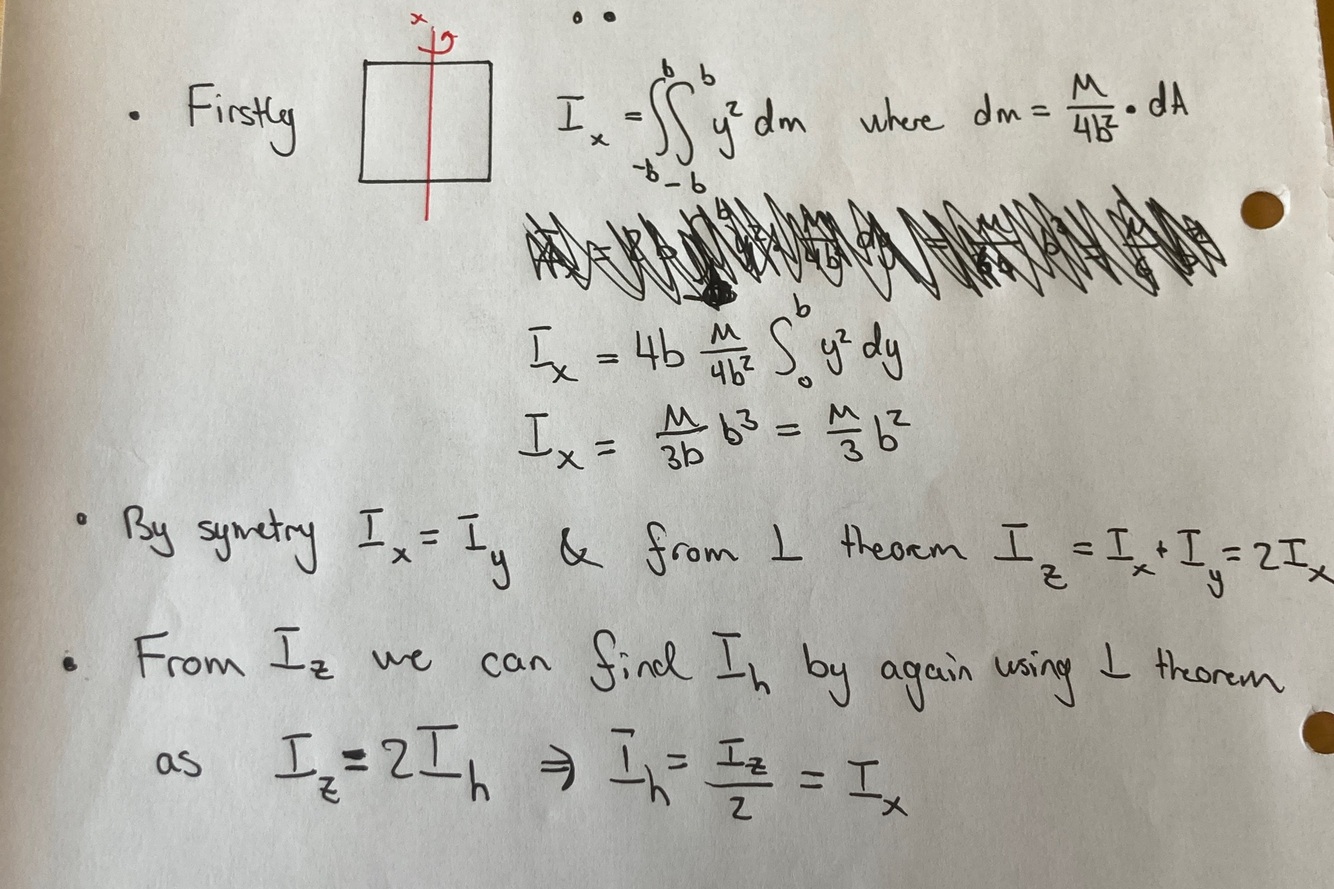 x
• Firstly I_x = ∫_{-b}^{b}∫_{-b}^{b} y² dm where dm = M/4b² • dA
I_x = 4b M/4b² ∫_0^b y² dy
I_x = M/3b b³ = M/3 b²
• By symetry I_x = I_y & from ⊥ theorem I_z = I_x + I_y = 2I_x
• From I_z we can find I_h by again using ⊥ theorem
as I_z = 2I_h ⇒ I_h = I_z/2 = I_x